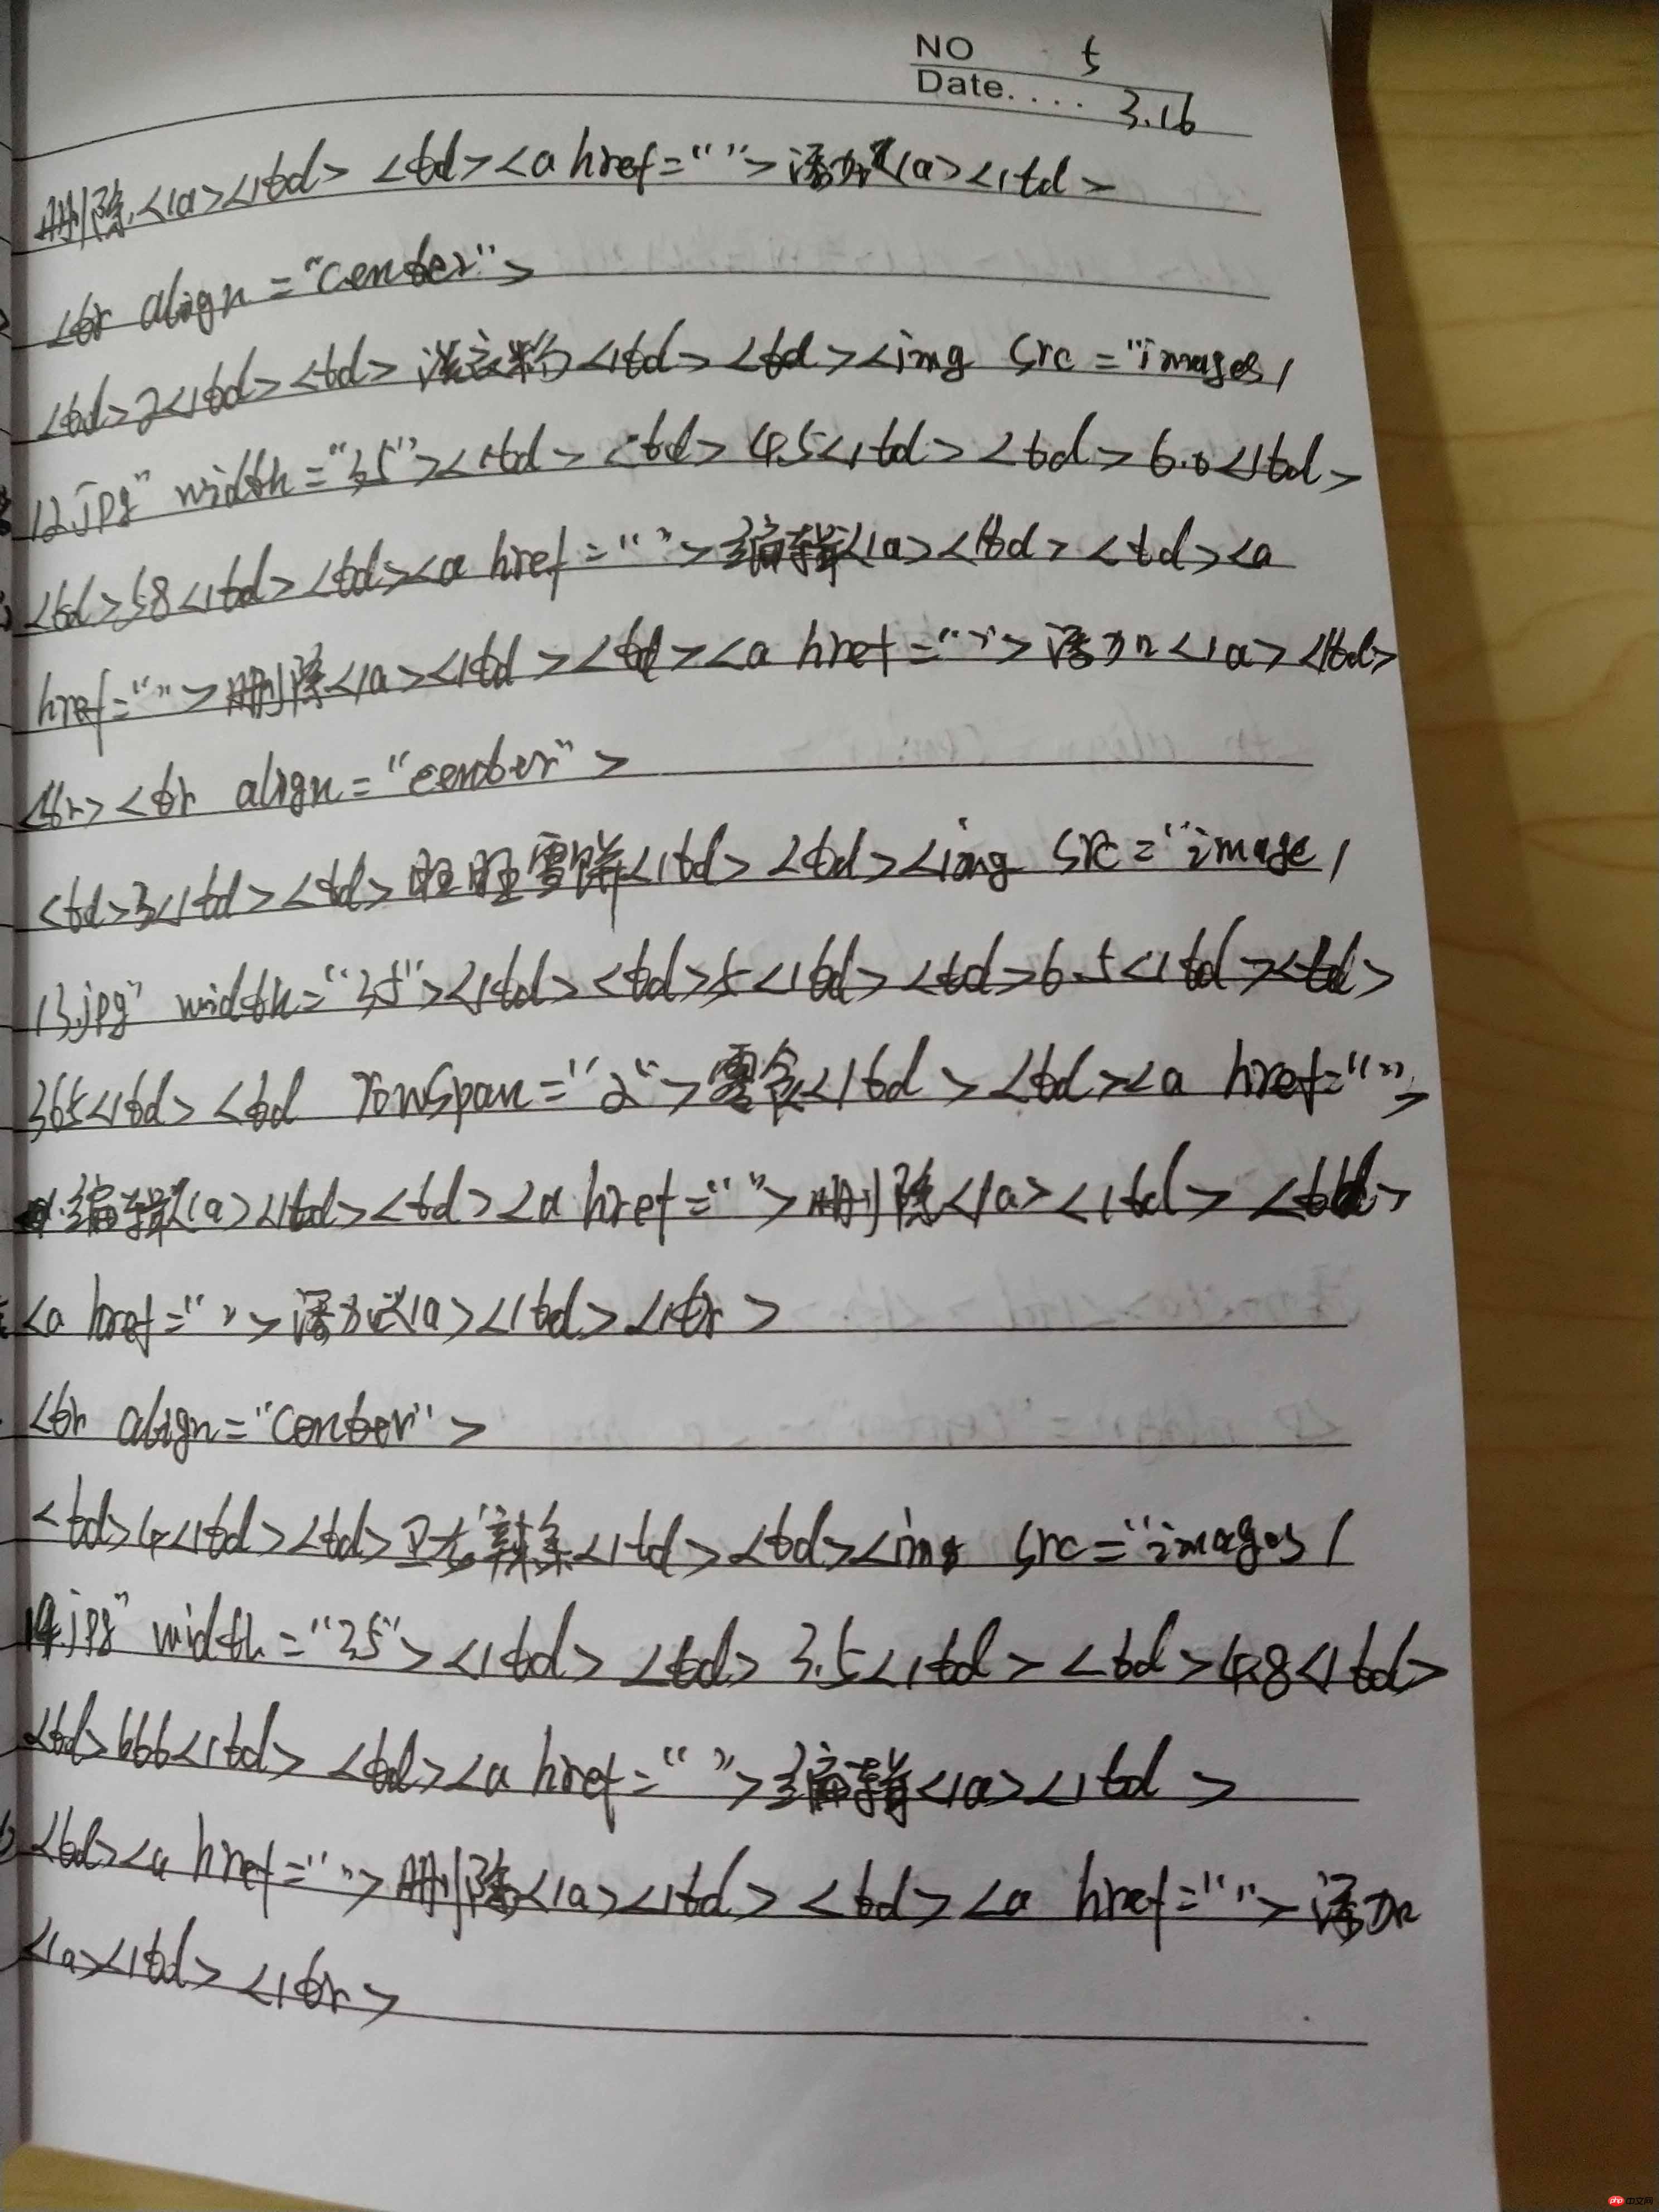 NO 5
Date.... 3.16
删除</a></td> <td><a href="">添加</a></td>
<tr align="center">
<td>2</td><td>洗衣粉</td> <td><img src="images/
12.jpg" width="35"></td> <td>4.5</td> <td>6.0</td>
<td>58</td><td><a href="">编辑</a></td> <td><a
href="">删除</a></td><td><a href="">添加</a></td>
</tr><tr align="center">
<td>3</td><td>旺旺雪饼</td> <td><img src="image/
13.jpg" width="35"></td><td>5</td><td>6.5</td><td>
365</td><td rowspan="2">零食</td><td><a href="">
编辑</a></td><td><a href="">删除</a></td><td>
<a href="">添加</a></td></tr>
<tr align="center">
<td>4</td><td>卫龙辣条</td><td><img src="images/
14.jpg" width="35"></td> <td>3.5</td><td>4.8</td>
<td>666</td> <td><a href="">编辑</a></td>
<td><a href="">删除</a></td> <td><a href="">添加
</a></td></tr>
php 中文网